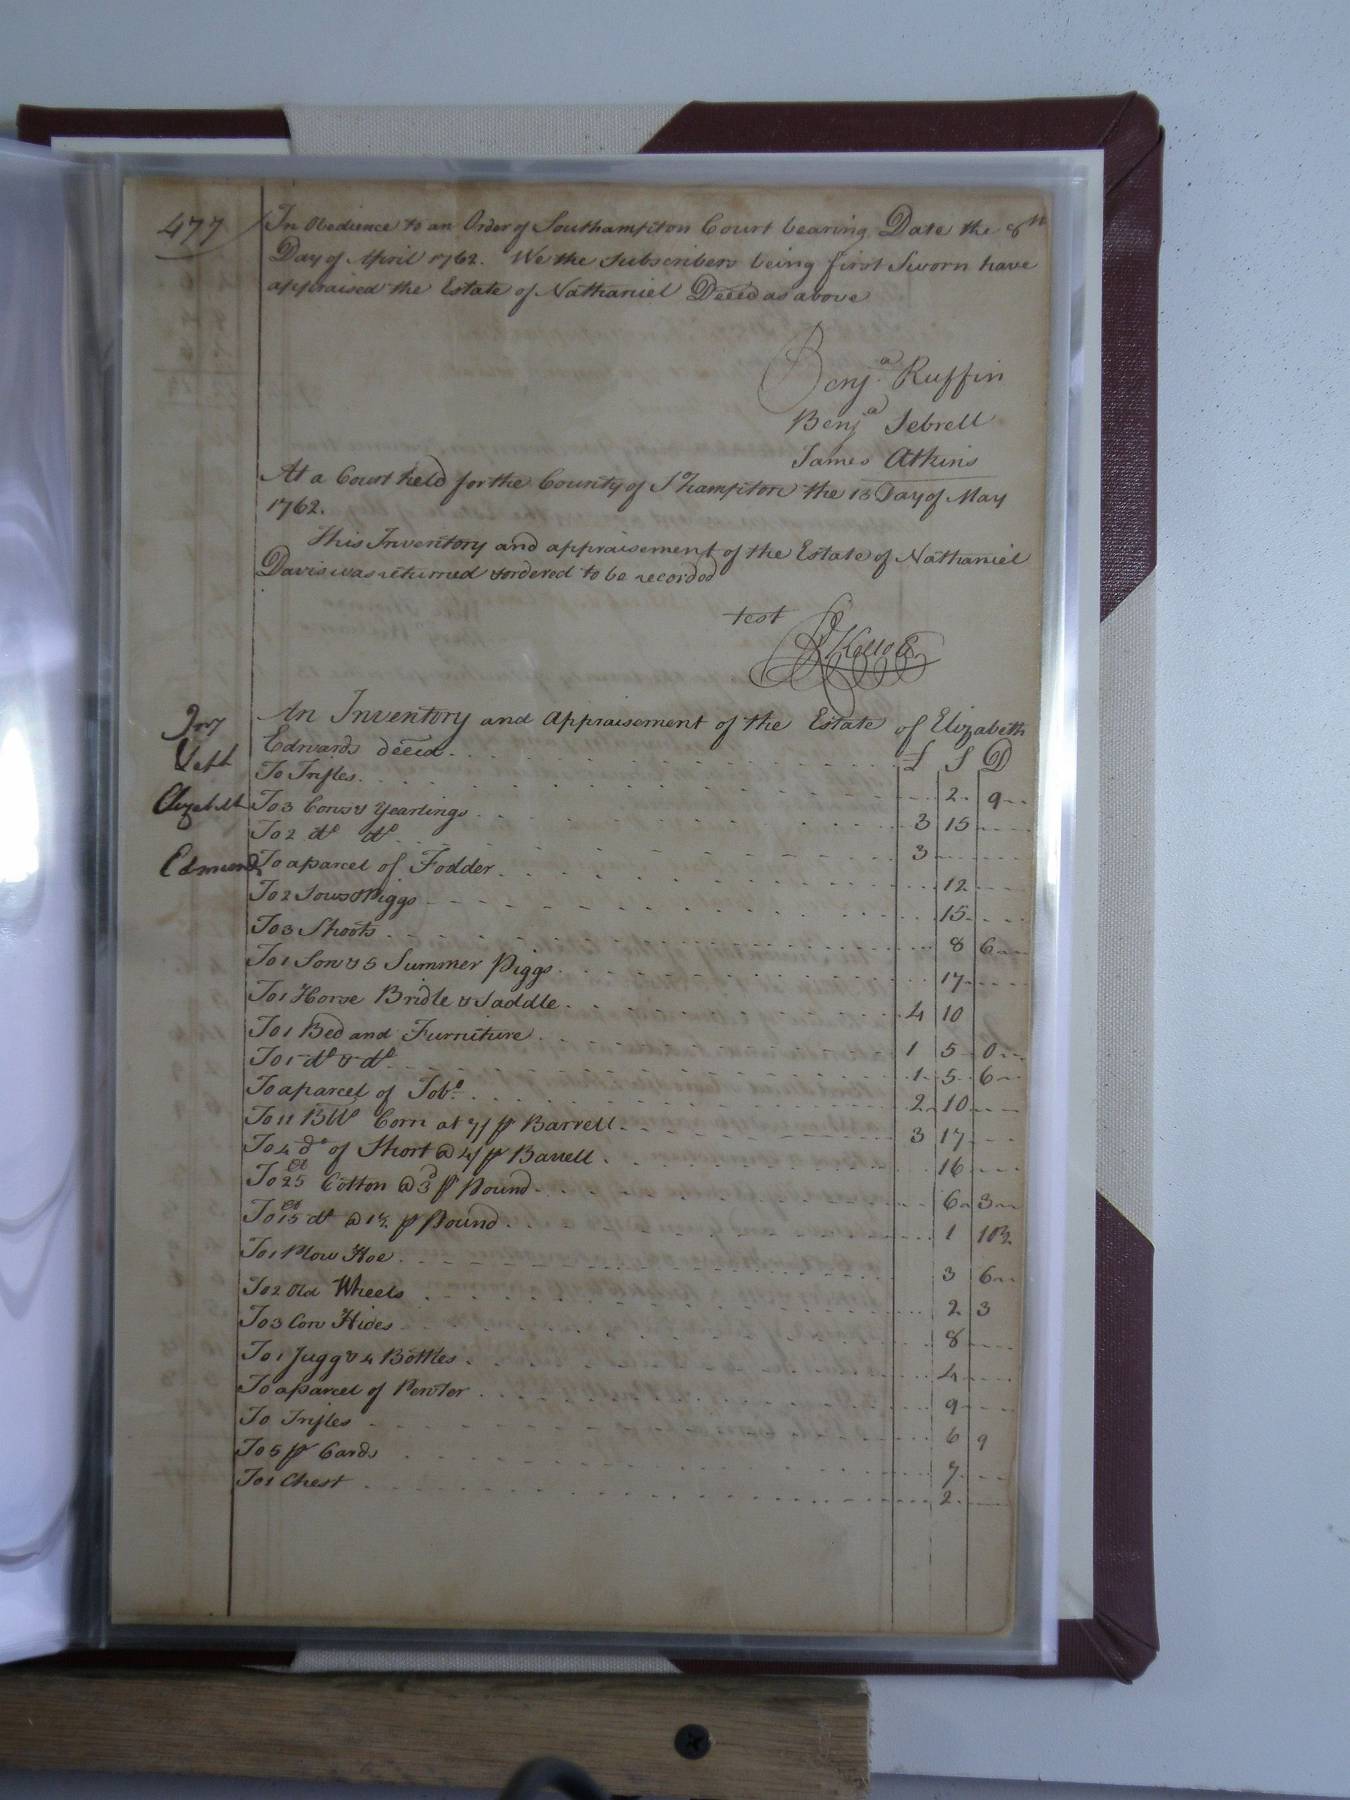 477
In Obedience to an Order of Southampton Court bearing Date the 8th
Day of April 1762. We the Subscribers being first Sworn have
appraised the Estate of Nathaniel Deced as above
Benja. Ruffin
Benja Sebrell
James Atkins
At a Court held for the County of Shampton the 13 Day of May
1762.
This Inventory and appraisement of the Estate of Nathaniel
Davis was returned & ordered to be recorded
test
An Inventory and Appraisement of the Estate of Elizabeth
Edwards deced. £ S D
To Trifles 2 9
Elizabeth
To 3 Cows & Yearlings 3 15
To 2 do do 3
To a parcel of Fodder 12
To 2 Sows & Piggs 15
To 3 Shoots 8 6
To 1 Sow & 5 Summer Piggs 17
To 1 Horse Bridle & Saddle 4 10
To 1 Bed and Furniture 1 5 0
To 1 do & do 1 5 6
To a parcel of Tobo. 2 10
To 11 Bll Corn at 7/ p Barrell 3 17
To 4 do of Short @ 4/ p Barrell 16
To 25 Cotton @ 3d p Pound 6 3
To 15 do @ 1½ p Pound 1 10½
To 1 Plow Hoe 3 6
To 2 Old Wheels 2 3
To 3 Cow Hides 8
To 1 Jugg & 4 Bottles 4
To a parcel of Pewter 9
To Trifles 6 9
To 5 pr Cards 7
To 1 Chest 2